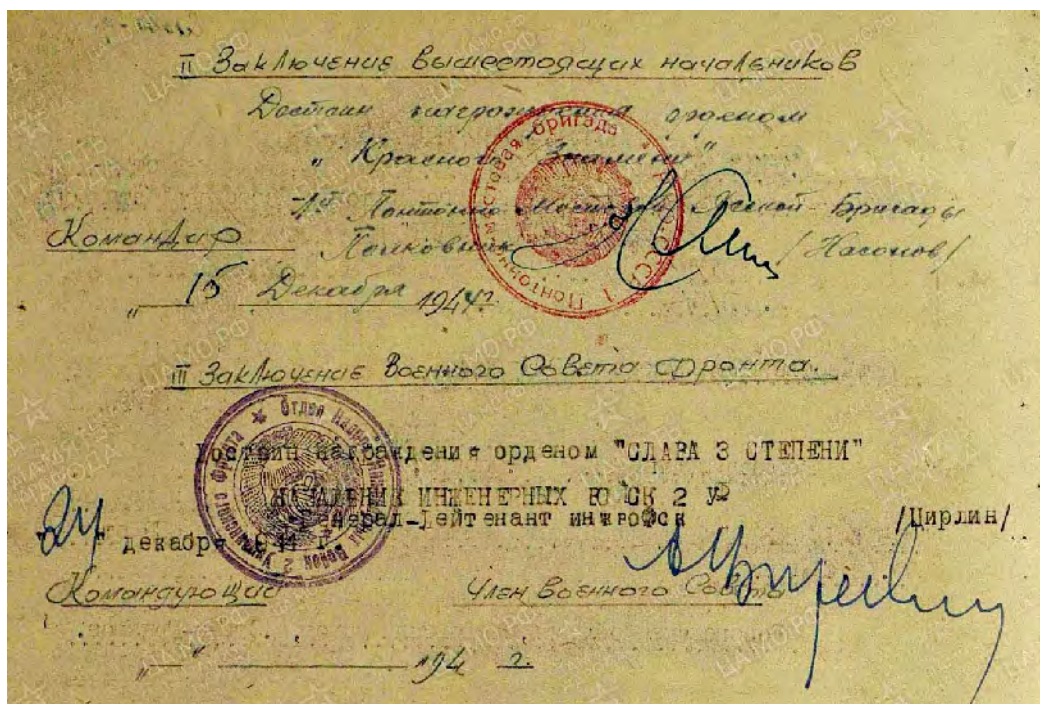 II Заключение вышестоящих начальников
Достоин награждения орденом
"Красного Знамени"
1й Понтонно-Мостовой Бригады
Командир Полковник /Насонов/
"15 Декабря 1944г.
III Заключение Военного Совета Фронта.
Достоин награждения орденом "СЛАВА 3 СТЕПЕНИ"
НАЧАЛЬНИК ИНЖЕНЕРНЫХ ВОЙСК 2 УФ
Генерал-Лейтенант инжвойск /Цирлин/
24 декабря 1944 г.
Командующий Член Военного Совета
"___" ___ 194 г.